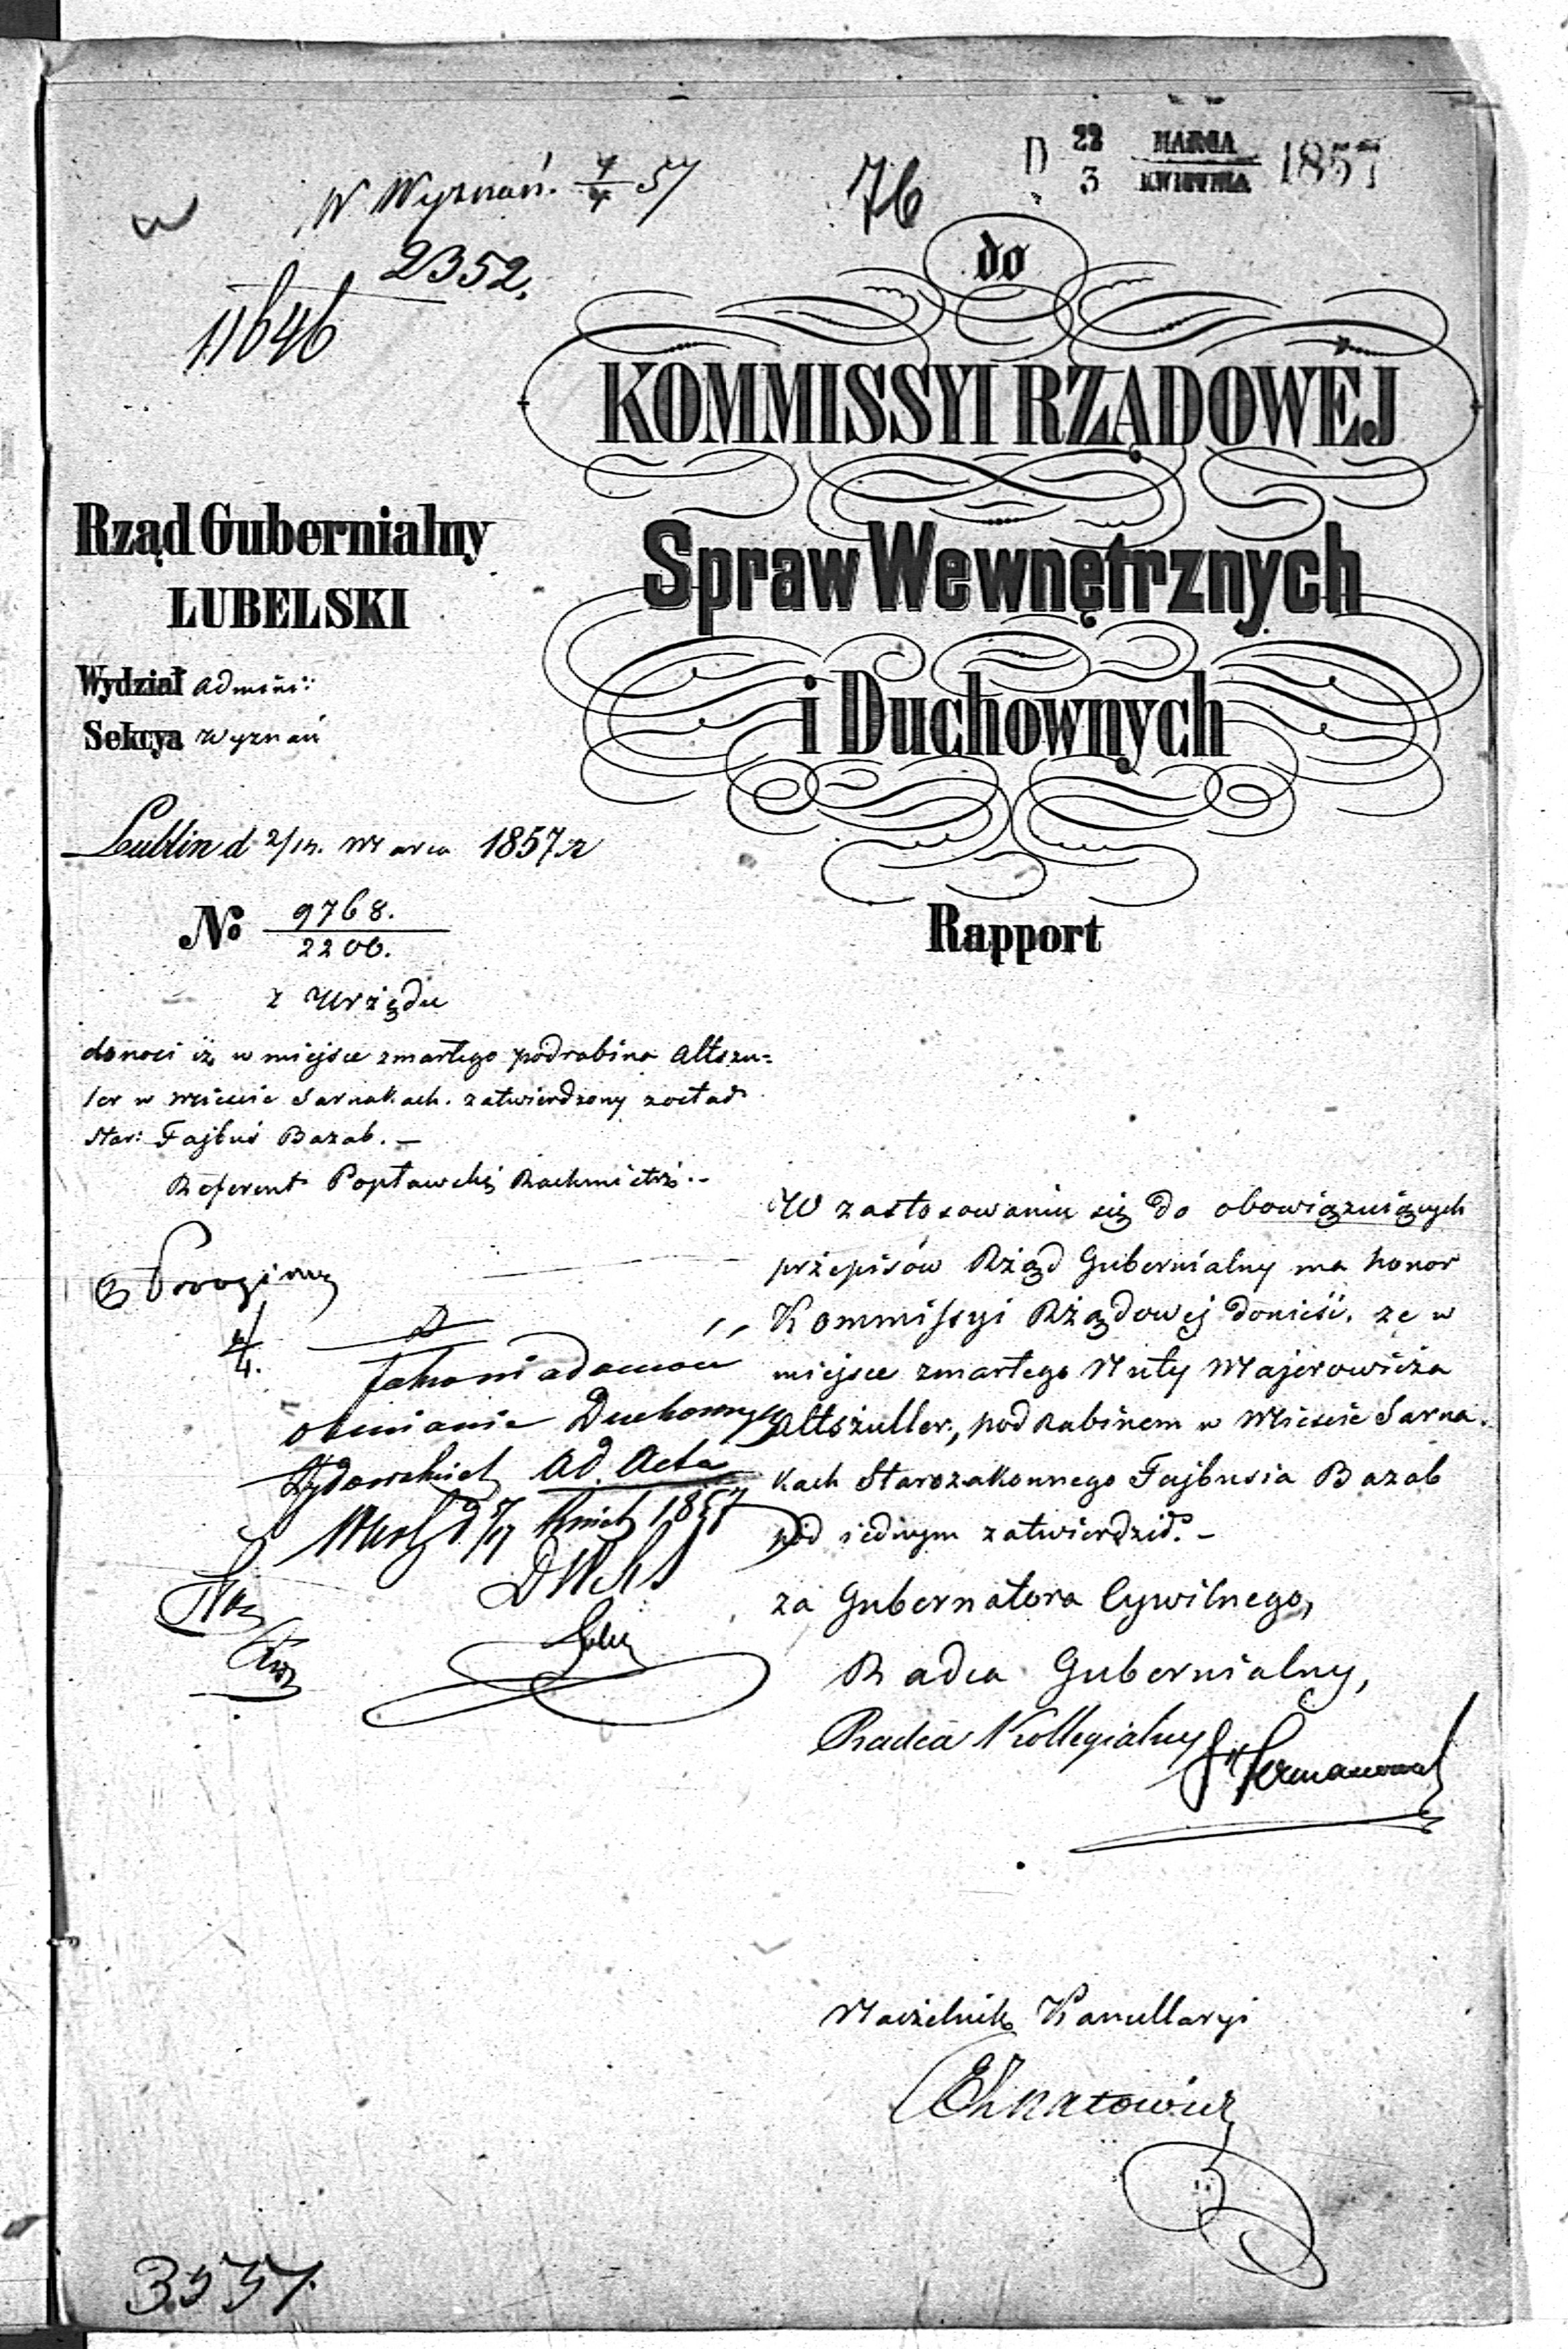 D 22 MARCA 1857
3 KWIETNIA
W Wyznań. 4/4 57
76
2352.
11646
do
KOMMISSYI RZĄDOWEJ
Spraw Wewnętrznych
i Duchownych
Rapport
Rząd Gubernialny
LUBELSKI
Wydział Admini:
Sekcya Wyznań
Lublin d 2/14. Marca 1857 r
No 9768.
2200.
z Urzędu
donosi iż w miejsce zmarłego podrabina Altszu=
ler w Mieście Sarnakach. zatwierdzony został
Star: Fajbuś Bazab. —
Referent Popławski Rachmistrz..
W zastosowaniu się do obowiązuiących
przepisów Rząd Gubernialny ma honor
Kommissyi Rządowej donieść. że w
miejsce zmarłego Nuty Majerowicza
Altszuller, pod Rabinem w Mieście Sarna
kach Starozakonnego Fajbusia Bazab
pod iednym zatwierdził. —
za Gubernatora Cywilnego,
Radca Gubernialny,
Radca Kollegialny
4/4.
Duchownych
Żydowskich Ad Acta
1857
Naczelnik Kancellaryi